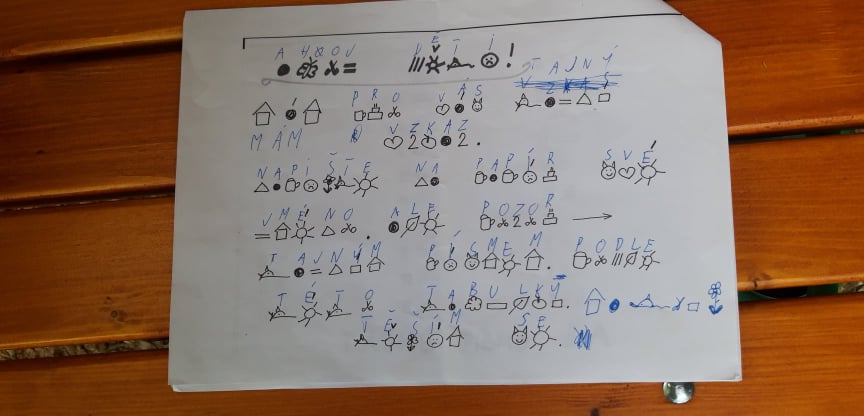 AHOJ DĚTI!
PRO VÁS TAJNÝ
MÁM VZKAZ.
NAPIŠTE NA PAPÍR SVÉ
JMÉNO. ALE POZOR →
TAJNÝM PÍSMEM. PODLE
TÉTO TABULKY.
TĚŠÍM SE.